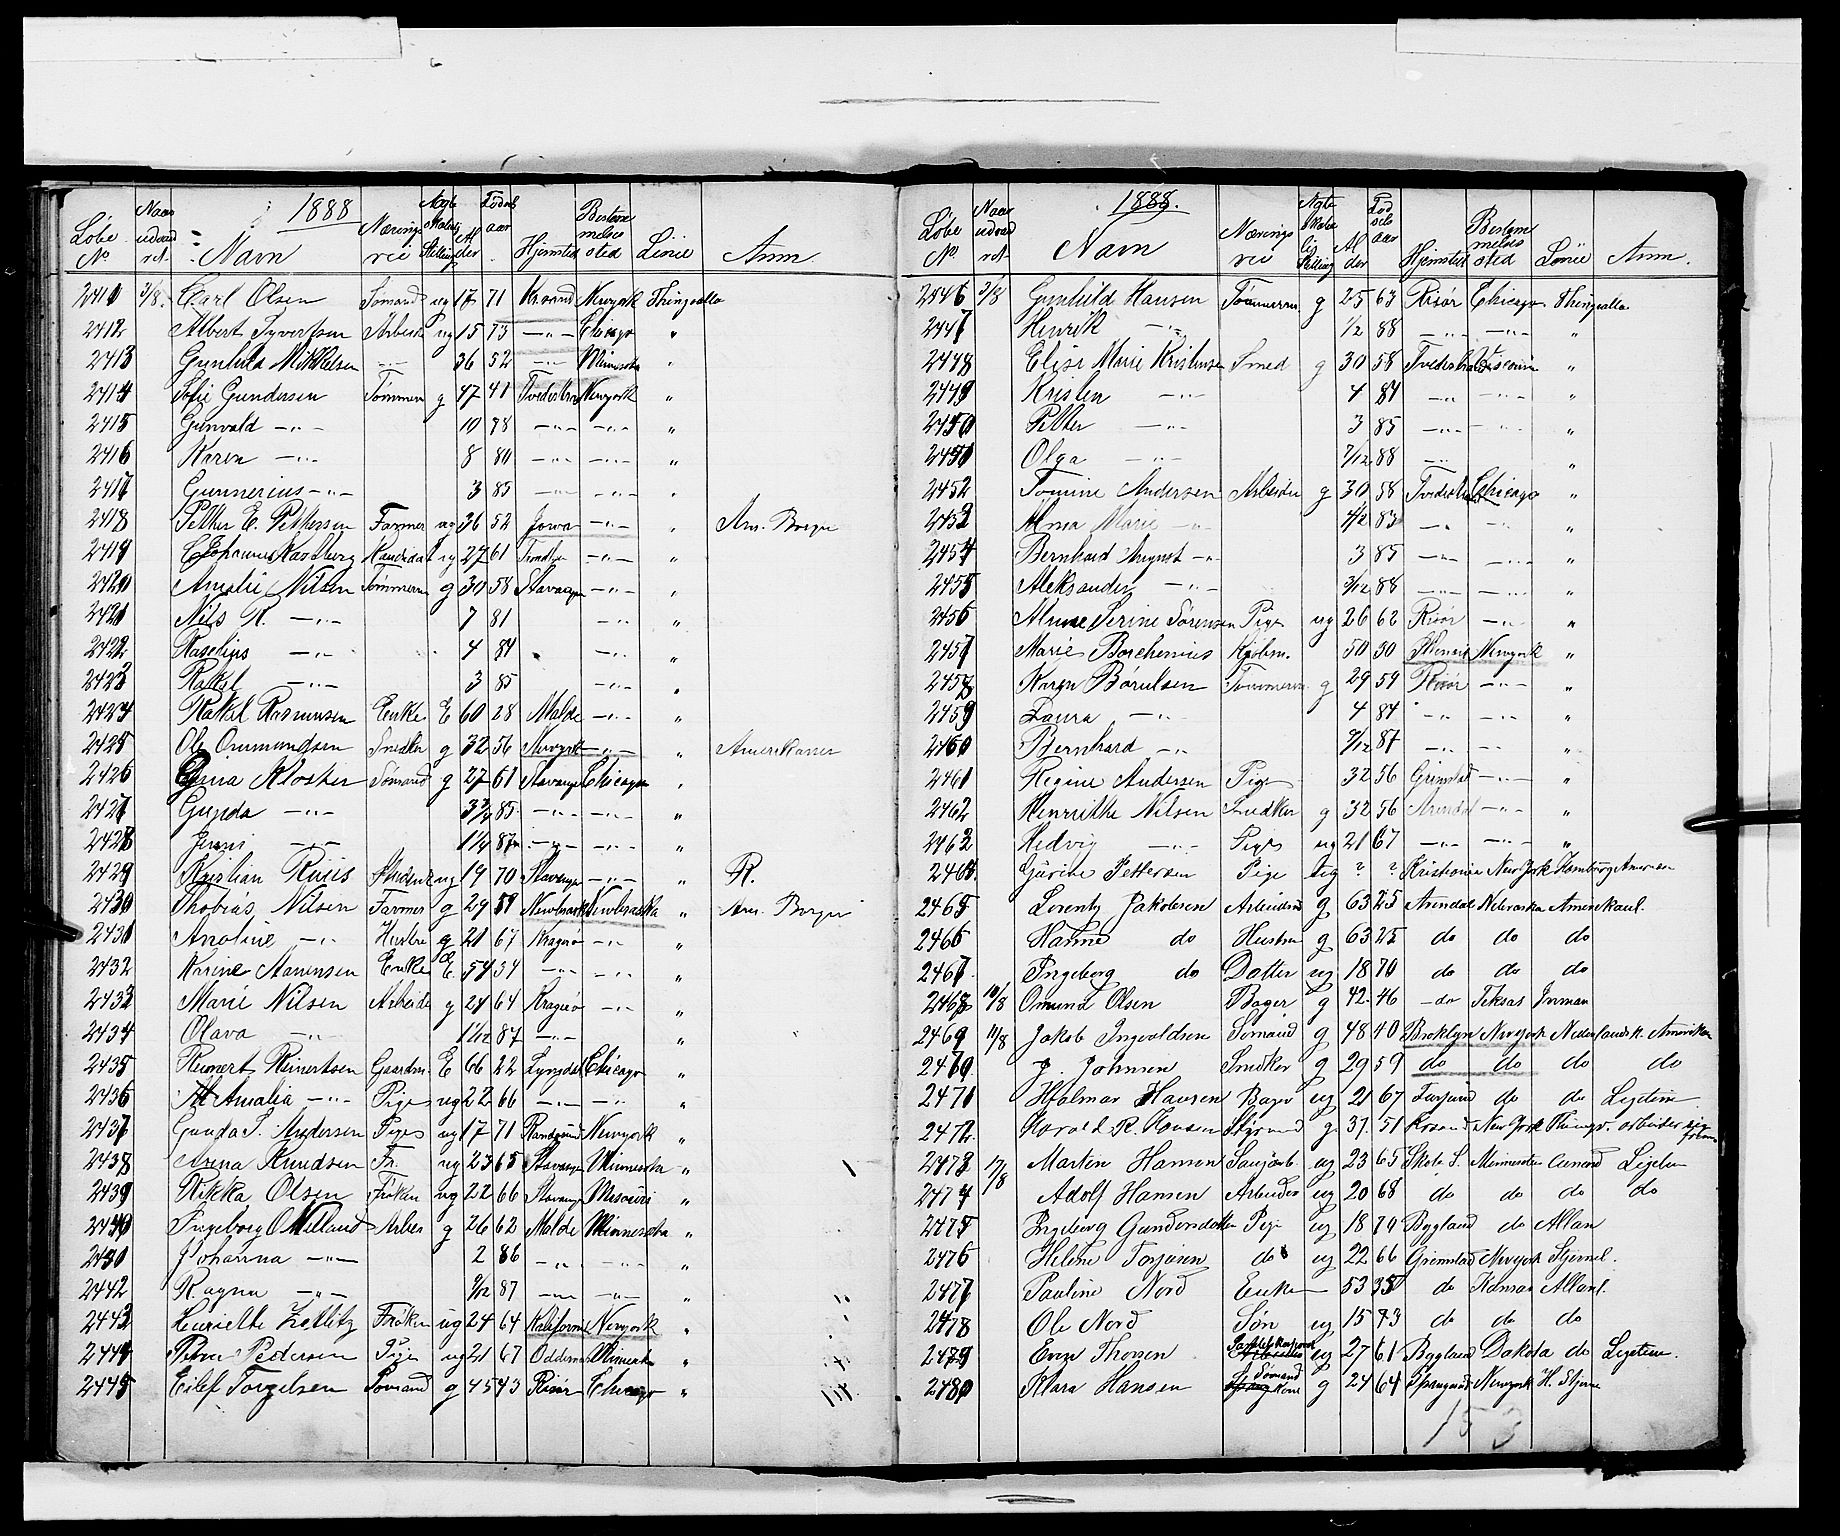 1888
Løbe No Naar udvad ret. Navn Nærings vei Ægte skabelig Stilling Al der Fødsels aar Hjemsted Bestem melses sted Linie Anm
2411 3/8. Carl Olsen Sømand ug 17 71 Krsand Newyork Thingvalla
2412 Albert Syvertsen Arbeider ug 15 73 —"— Chicago "
2413 Gunhild Mikkelsen —"— 36 52 —"— Minnesota "
2414 Sofie Gundersen Tømmerm g 47 41 Tvedestrand Newyork "
2415 Gunvald —"— 10 78 —"— —"— "
2416 Karen —"— 8 80 —"— —"— "
2417 Gunnerius —"— 3 85 —"— —"— "
2418 Petter E. Pettersen Farmer ug 36 52 Jowa —"— " Am. Borger
2419 ug 27 61 —"— "
2420 Amalie Nilsen Tømmerm g 30 58 Stavanger —"— "
2421 Nils R. —"— 7 81 —"— "
2422 —"— 4 84 —"— "
2423 Rakel —"— 3 85 —"— "
2424 Rakel Rasmussen Enke E 60 28 Molde —"— "
2425 Ole Ommundsen Snedker g 32 56 Newyork —"— " Amerikaner
2426 Kloster Sømand g 27 61 Stavanger Chicago "
2427 Gunda —"— 3 1/2 85 —"— —"— "
2428 Jenni —"— 1 1/4 87 —"— —"— "
2429 Kristian Ruus Student ug 19 70 Stavanger —"— " R.
2430 Thobias Nilsen Farmer g 29 59 Newbraska Newbraska " Am. Borger
2431 Anoline —"— Hustru g 21 67 Kragerø —"— "
2432 Enke E 54 34 —"— —"— "
2433 Marie Nilsen Arbeider g 24 64 Kragerø —"— "
2434 Olava —"— 1 1/12 87 —"— "
2435 Reinert Reinertsen Gaardm. E 66 22 Lyngdal Chicago "
2436 Amalia —"— Pige ug 22 66 —"— —"— "
2437 Gunda S. Andersen Pige ug 17 71 Randøsund Newyork "
2438 Knudsen Fr. ug 23 65 Stavanger Minnesota "
2439 Rikka Olsen Frøken ug 22 66 Stavanger Misouri "
2440 Ingeborg O Melland Arbei g 26 62 Molde Minnesota "
2441 Johanna —"— 2 86 —"— —"— "
2442 Ragna —"— 9/12 87 —"— —"— "
2443 Henriette Zetlitz Frøken ug 24 64 Kalifornia Newyork "
2444 Pedersen Pige ug 21 67 Oddernes Minesota "
2445 Eilef Torgelsen Sømand g 45 43 Risør Chicago "
1888.
Løbe No. Naar udvad ret Navn Nærings vei Ægte skabe lig Stilling Al der Fød sels aar Hjemsted Bestem melses sted Linie Anm.
2446 3/8 Gunhild Hansen Tømmerm g 25 63 Risør Chicago Thingvalla
2447 Henrik —"— 1/2 88 —"— —"— "
2448 Elise Marie Kristensen Smed g 30 58 Tvedestrand Visconsin "
2449 Kristen —"— 4 84 —"— —"— "
2450 Petter —"— 3 85 —"— —"— "
2451 Olga —"— 7/12 88 —"— "
2452 Tomine Andersen Arbeider g 30 58 Tvedestrand Chicago "
2453 Alma Marie —"— 4 1/2 83 —"— —"— "
2454 Bernhard August —"— 3 85 —"— —"— "
2455 Aleksander —"— 3/12 88 —"— —"— "
2456 Serine Sørensen Pige ug 26 62 Risør —"— "
2457 Marie Borchenius Kjøbm. 50 30 Newyork "
2458 Karen Tømmerm g 29 59 Risør —"— "
2459 Laura —"— 4 84 —"— —"— "
2460 Bernhard —"— 9/12 87 —"— —"— "
2461 Regine Andersen Pige 32 56 Grimstad —"— "
2462 Henrikke Nilsen Snedker g 32 56 Arendal —"— "
2463 Hedvig —"— Pige ug 21 67 —"— —"— "
2464 Pettersen Pige ug ? ? Kristiania New York Hamburg American
2465 Lorentz Jakobsen Arbeider g 63 25 Arendal Nebraska Amerikanl.
2466 Hanne do Hustru g 63 25 do do do
2467 Ingeborg do Datter ug 18 70 do do do
2468 10/8 Omund Olsen Bager g 42 46 do Teksas Inman
2469 11/8 Jakob Ingvoldsen Sømand g 48 40 Broklyn Newyork Nederlandsk. Amerikan
2470 J. Johnsen Snedker g 29 59 do do do do
2471 Hjalmar Hansen Bager ug 21 67 Farsund do do Ligeledes
2472 Harald R. Hansen Styrmand g 37 51 Krsand New York Thingv. arbeider sig frem
2473 17/8 Martin Hansen ug 23 65 Minnesota Cunard
2474 Adolf Hansen Arbeider ug 20 68 do do do do
2475 Ingeborg Gundersdatter Pige ug 18 70 Bygland do Allan
2476 Helene Torjusen do ug 22 66 Grimstad Newyork Stjernel.
2477 Pauline Nord Enke 53 35 do Kansas Allanl.
2478 Ole Nord Søn ug 15 73 do do do
2479 Even Thorsen ug 27 61 Bygland Dakota do
2480 Klara Hansen Sømand kone g 24 64 Newyork H. Stjerne
153